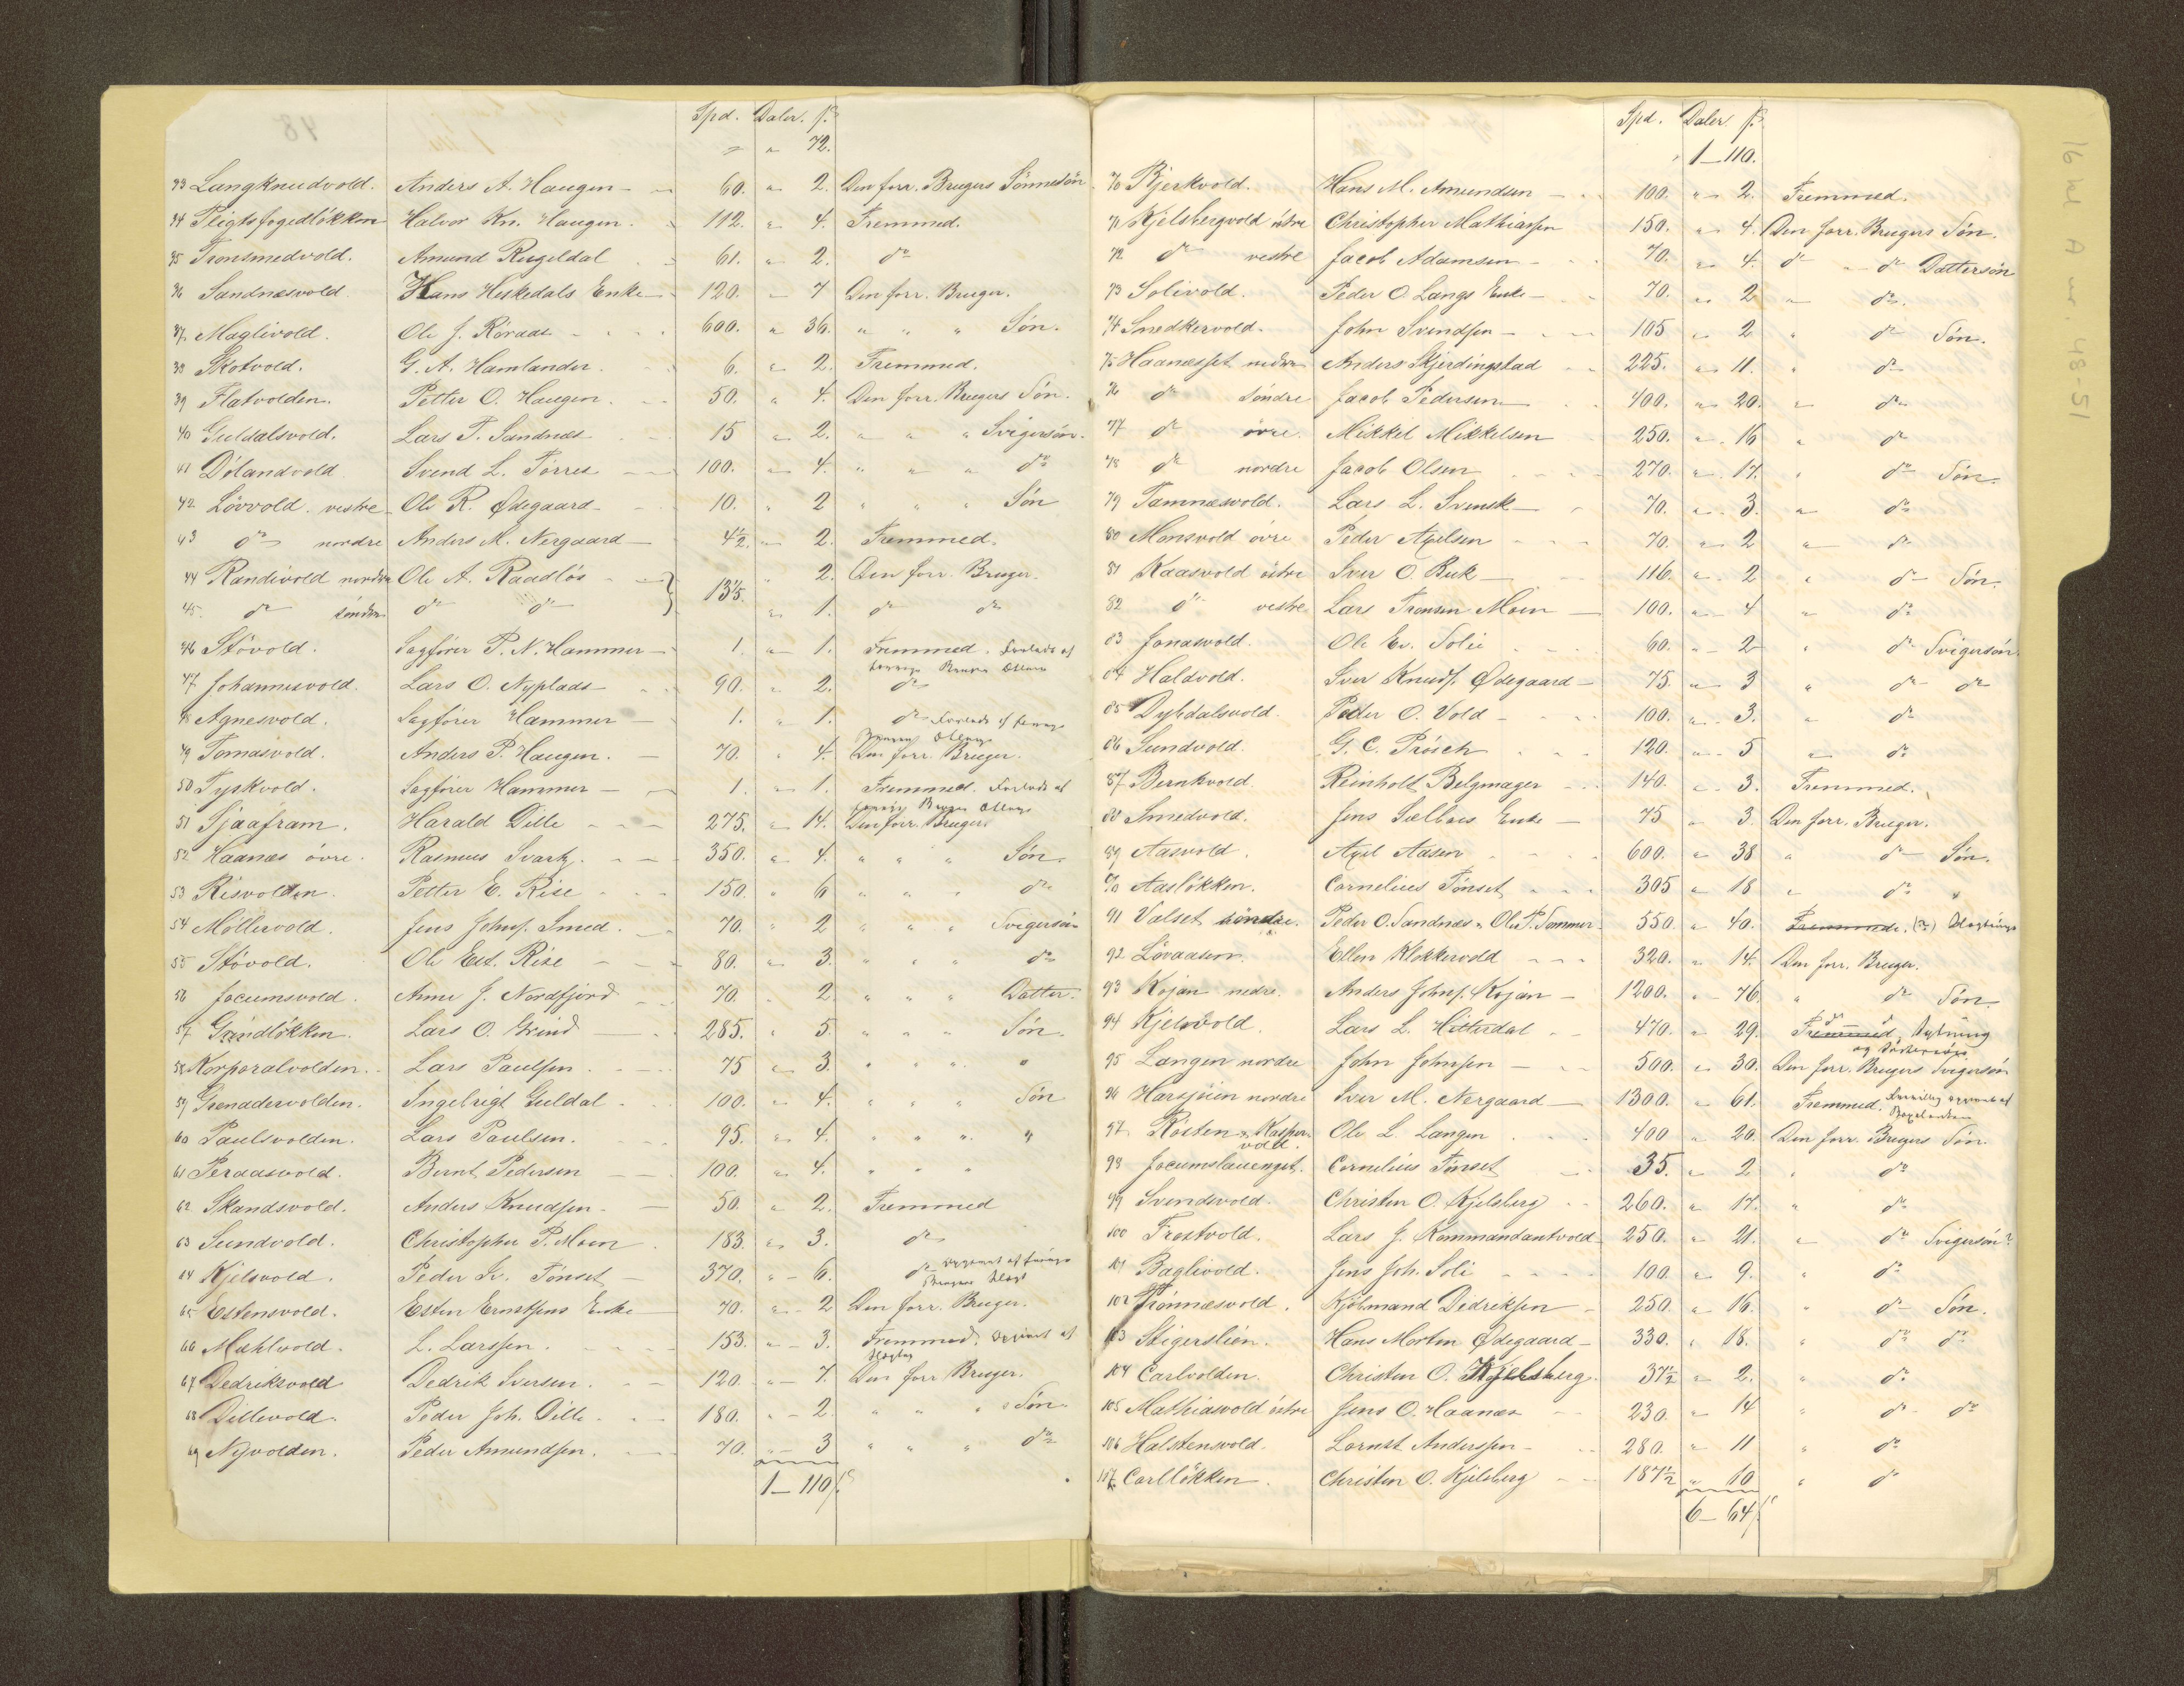 48
Spd. Daler. ß
" " 72.
33 Langknudvold. Anders A. Haugen 60. " 2. Den forr. Brugers Sönnesön
34 Pligtsfogedlökken Halvor Kn. Haugen. 112. " 4. Fremmed.
35 Tronsmedvold. Amund Rugeldal 61. " 2. do
36 Sandnæsvold Hans Heskedals Enke 120. " 7 Den forr. Bruger.
37 Maglivold. Ole J. Röraas 600. " 36. " " " Sön.
38 Skotvold. G. A. Hamlander. 6. " 2. Fremmed.
39 Flatvolden. Petter O. Haugen. 50. " 4. Den forr. Brugers Sön.
40 Guldalsvold. Lars T. Sandnæs 15 " 2. " " " Svigersön.
41 Dölandvold Svend L. Törres 100. " 4. " " " do
42 Lövvold vestre Ole R. Ødegaard 10. " 2 " " " Sön
43 do nordre Anders M. Nergaard 4½. " 2. Fremmed.
44 Randivold nordre Ole A. Raadlös } 135. " 2. Den forr. Bruger.
45. do söndre do do " 1. do do
46 Stövold. Sagförer P. N. Hammer 1. " 1. Fremmed. Forlods af
forrige Bruger
47 Johannesvold. Lars O. Nyplads 90. " 2. do
48 Agnesvold. Sagförer Hammer 1. " 1. do Forlods af forrige
49 Tomasvold. Anders P. Haugen. 70. " 4. Den forr. Bruger.
50 Tyskvold. Sagförer Hammer 1. " 1. Fremmed. Forlods af
forrige Bruger
51 Sjaafram. Harald Dille 275. " 14. Den forr. Bruger.
52 Haanæs övre. Rasmus Svart. 350. " 4. " " " Sön.
53 Risvolden. Petter E. Rise 150. " 6 " " " do
54 Möllervold. Jens Johns. Smed. 70. " 2 " " " Svigersön
55 Stövold. Ole Est. Rise 80. " 3. " " " do
56 Jocumsvold. Anne J. Nordfjord 70. " 2. " " " Datter.
57 Grindlökken. Lars O. Grind 285. " 5. " " " Sön.
58 Korporalvolden. Lars Paulsen. 75 " 3. " " " "
59 Grenadervolden. Ingebrigt Guldal. 100. " 4. " " " Sön
60 Paulsvolden. Lars Paulsen. 95. " 4. " " " "
61 Peraasvold. Bernt Pedersen 100. " 4. " " "
62 Skandsvold. Anders Knudsen. 50. " 2. Fremmed
63 Sundvold. Christopher P. Moen 183. " 3. do
64 Kjelsvold. Peder Iv. Tönset 370. " 6. do af forrige
Brugers Slægt
65 Estensvold. Esten Ernstsens Enke 70. " 2 Den forr. Bruger.
66 Mahlvold. L. Larssen. 153. " 3. Fremmed. af
67 Dedriksvold Dedrik Iversen. 120. " 7. Den forr Bruger.
68 Dillevold. Peder Joh. Dille. 180. " 2. " " " Sön
69 Nyvolden. Peder Amundsen. 70. " 3 " " " do
1 – 110 ß
Spd. Daler. ß
1 – 110.
70 Bjerkvold. Hans M. Amundsen 100. " 2. Fremmed.
71 Kjelsbergvold östre Christopher Mathiassen 150. " 4. Den forr. Brugers Sön.
72 do vestre Jacob Adamsen 70. " 4. do " do Dattersön
73 Solivold. Peder O. Langs Enke 70. " 2 " do.
74 Snedkervold. John Svendsen 105 " 2 " do Sön.
75 Haanæsset nedre Anders Skjerdingstad 225. " 11. " do
76 do Söndre Jacob Pedersen 400. " 20. " do
77 do övre. Mikkel Mikkelsen 250. " 16 " do
78 do nordre Jacob Olsen 270. " 17. " do Sön.
79 Tamnæsvold. Lars L. Svensk 70. " 3. " do
80 Monsvold övre Peder Axelsen 70. " 2 " do
81 Kaasvold östre Iver O. Buk 116. " 2 " do Sön.
82 do vestre Lars Tronsen Moen 100. " 4 " do
83 Jonasvold. Ole Ev. Solie 60. " 2 " do Svigersön.
84 Haldvold. Iver Knuds. Ødegaard 75. " 3 " do do
85 Dyhdalsvold. Peder O. Vold 100. " 3. " do
86 Sundvold. G. C. Prösch 120. " 5 " do
87 Berntvold Reinholt Belgmager 140. " 3. Fremmed.
88 Smedvold. Jens Sælboes Enke 75 " 3. Den forr. Bruger.
89 Aasvold. Axel Aasen 600. " 38 " do Sön.
90 Aaslökken. Cornelius Tönset 305 " 18 " do "
91 Valset söndre. Peder O. Sandnæs & Ole P. Sommer 550. " 40. Fremmede. (?) Slægtninge
92 Lövaasen. Ellen Klokkervold 320. " 14. Den forr. Bruger.
93 Kojan nedre. Anders Johns. Kojan 1200. " 76. " do Sön
94 Kjelsvold. Lars L. Hitterdal 470. " 29. Fremmed,
95 Langen nordre John Johnsen 500. " 30. Den forr. Brugers Svigersön
96 Harsjöen nordre Iver M. Nergaard 1300. " 61. Fremmed.
97 Rösten & Kasper-
vold. Ole L. Langen 400 " 20. Den forr. Brugers Sön.
98 Jocumslauenget. Cornelius Tönset 35. " 2 " do
99 Svendsvold. Christen O. Kjelsberg 260. " 17. " do
100 Trostvold. Lars J. Kommandantvold 250. " 21. " do Svigersön?
101 Baglivold. Jens Joh. Soli 100. " 9. " do
102 Trönnæsvold. Kjöbmand Didriksen 250. " 16. " do Sön.
103 Stigerslien. Hans Morten Ødegaard 330. " 18. " do do
104 Carlvolden. Christen O. Kjelsberg. 37½ " 2. " do
105 Mathiasvold östre Jens O. Haanæs 230. " 14 " do do
106 Halstensvold. Lornst Anderssen 280. " 11 " do
107 Carllökken. Christen O. Kjelsberg 187½ " 10 " do
6 – 64 ß
16 hd A nr. 48-51